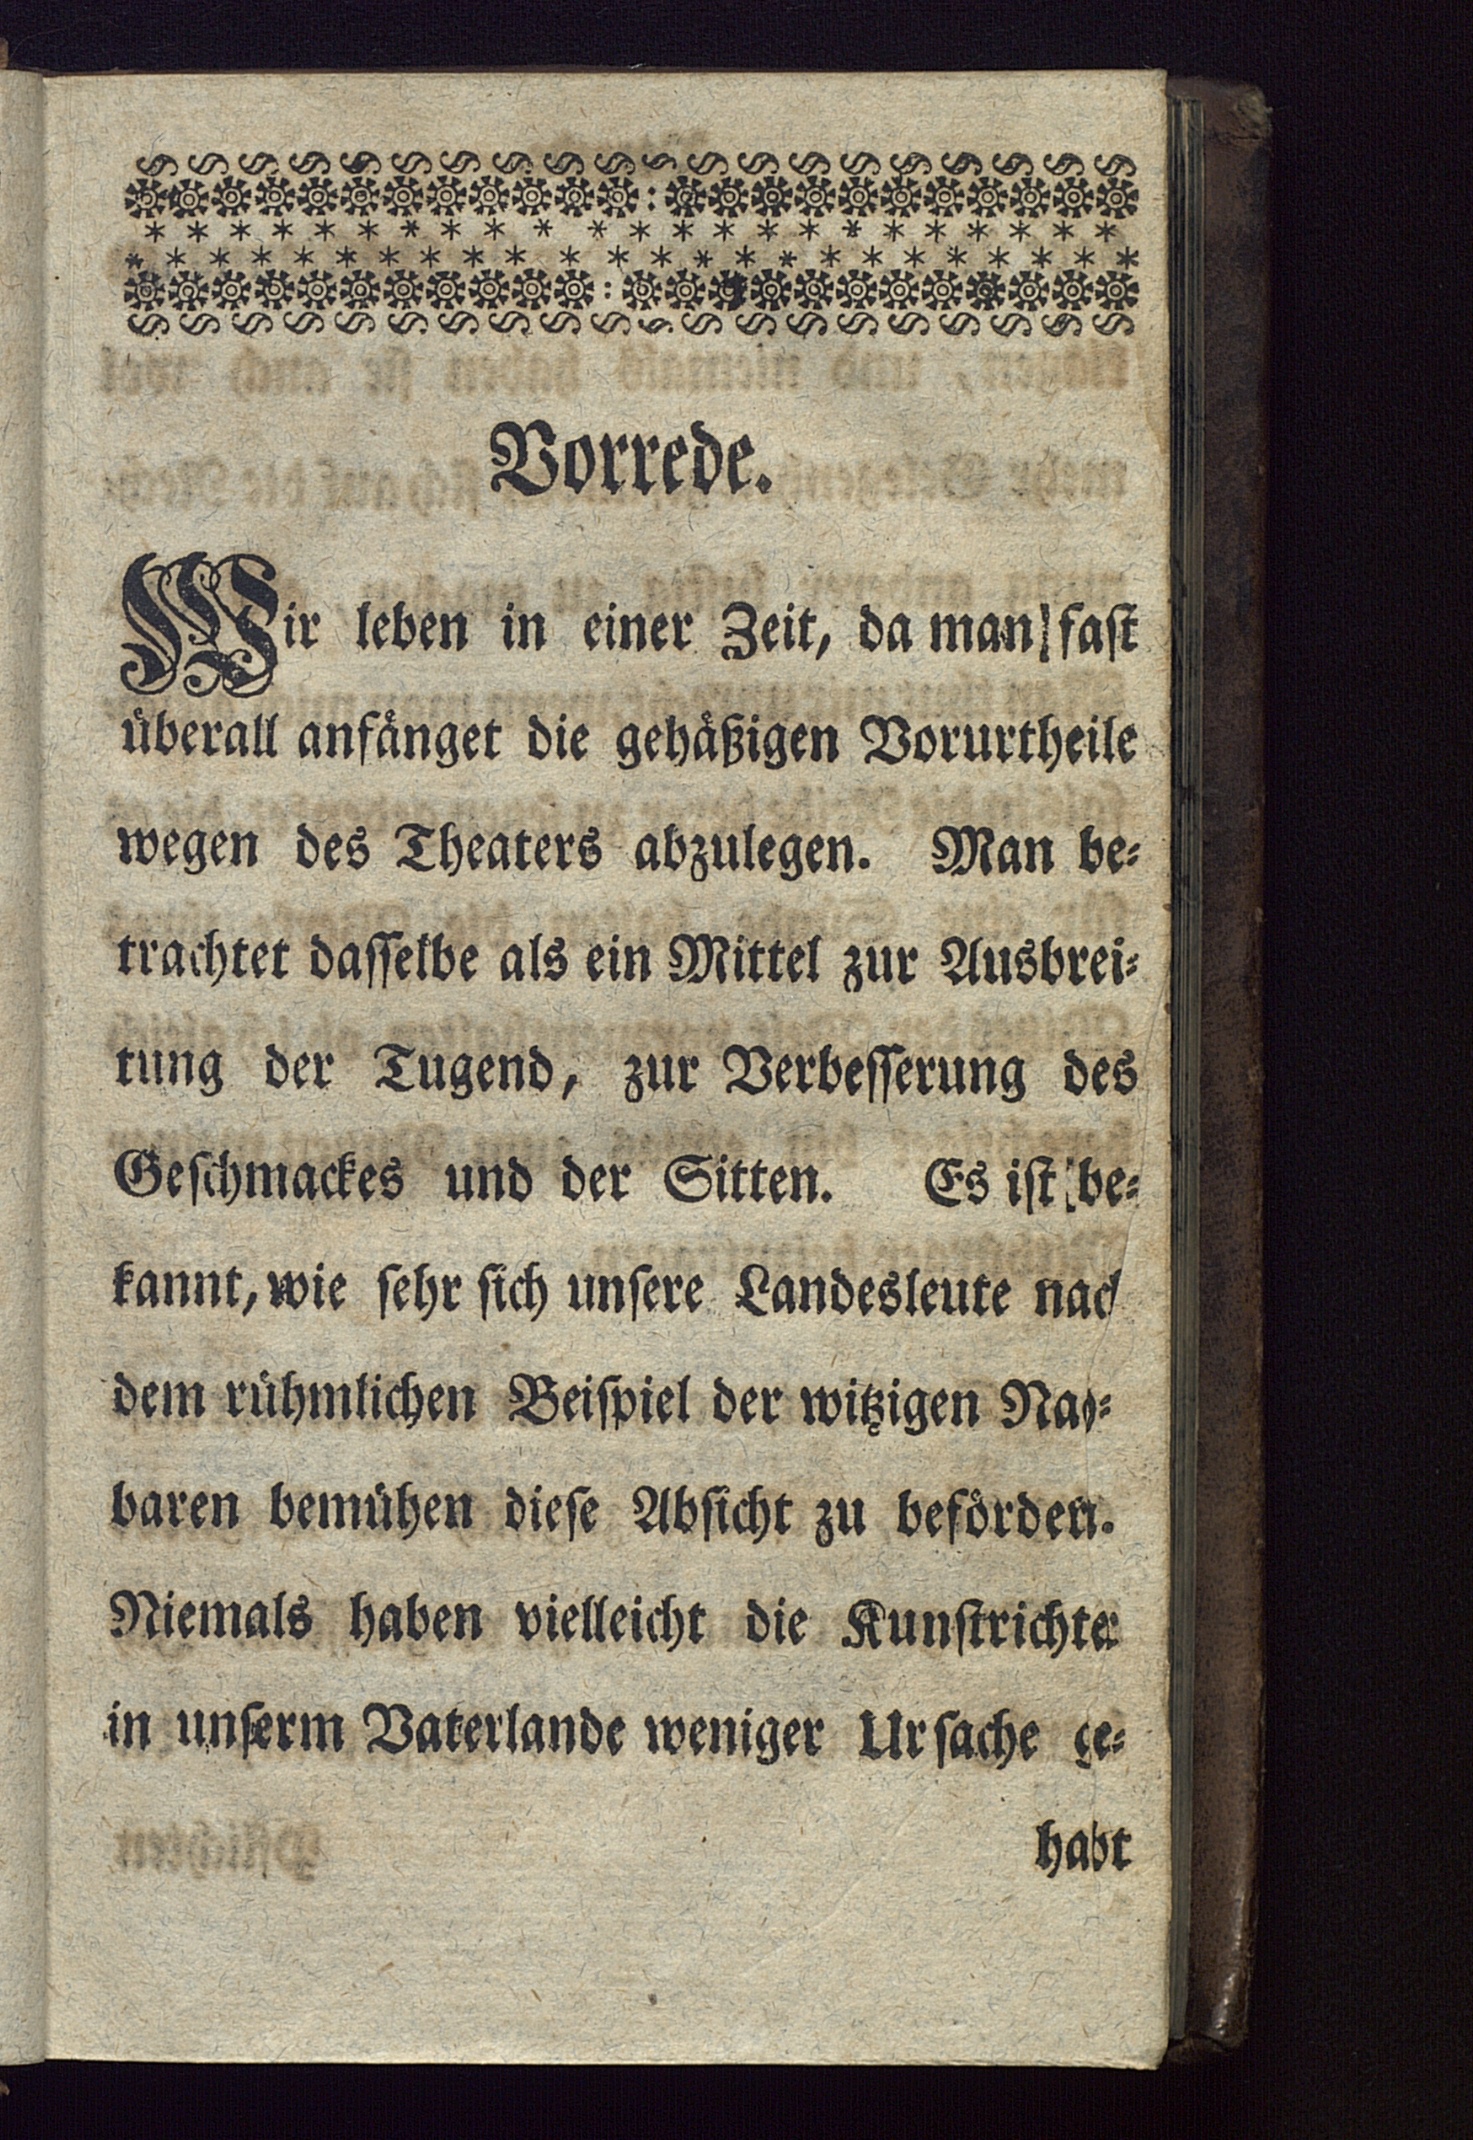 Vorrede.
Wir leben in einer Zeit, da man fast
überall anfänget die gehäßigen Vorurtheile
wegen des Theaters abzulegen. Man be-
trachtet dasselbe als ein Mittel zur Ausbrei-
tung der Tugend, zur Verbesserung des
Geschmackes und der Sitten. Es ist be-
kannt, wie sehr sich unsere Landesleute nach
dem rühmlichen Beispiel der witzigen Nach-
baren bemühen diese Absicht zu beförden.
Niemals haben vielleicht die Kunstrichter
in unserm Vaterlande weniger Ursache ge-
habt